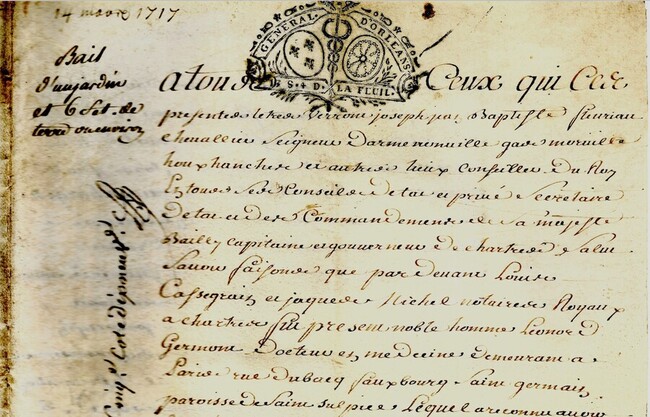 14 mars 1717
GENERAL. D'ORLEANS
S. 4 D. LA FEUIL.
Bail
d'un jardin
et 6 set. de
terre ou environ
A tous Ceux qui Ces
presentes lettres verront joseph jean Baptiste fleuriau
chevallier Seigneur Darmenonville gas morville
houx hanches et autres lieux Conseiller du Roy
En tous ses Conseils detat et privé Secretaire
detat et des Commandemens de sa majesté
Bailly capitaine et gouverneur de chartres Salut
savoir faisons que par devant Louis
Cassegrain et jaques Michel notaires Royaux
a chartres fut present noble homme Leonord
Germont Docteur en medecine demeurant a
Paris rue dubacq fauxbourg saint germain
paroisse de saint sulpice Lequel a reconnu avoir